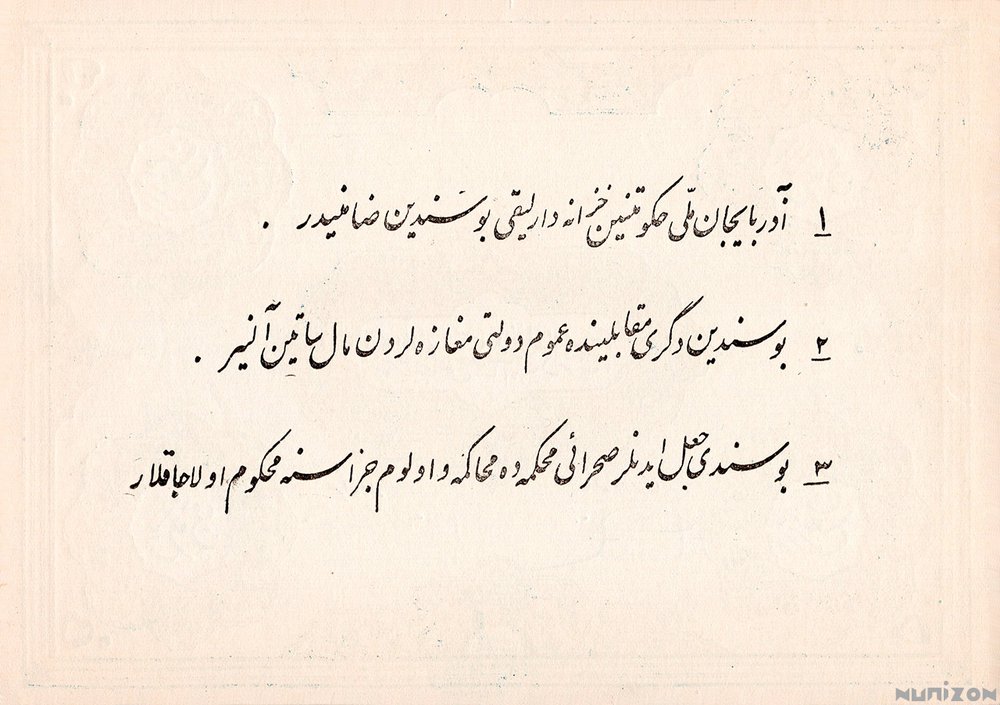 ۱ آذربایجان ملّی حکومتنین خزانه دارلیقی بو سندین ضامنیدر .
۲ بو سندین دگری مقابلینده عموم دولتی مغازه لردن مال ساتین آلنیر .
۳ بو سندی جعل ایدنلر صحرائی محکمه ده محاکمه و اولوم جزاسنه محکوم اولاجاقلار
NUMIZON